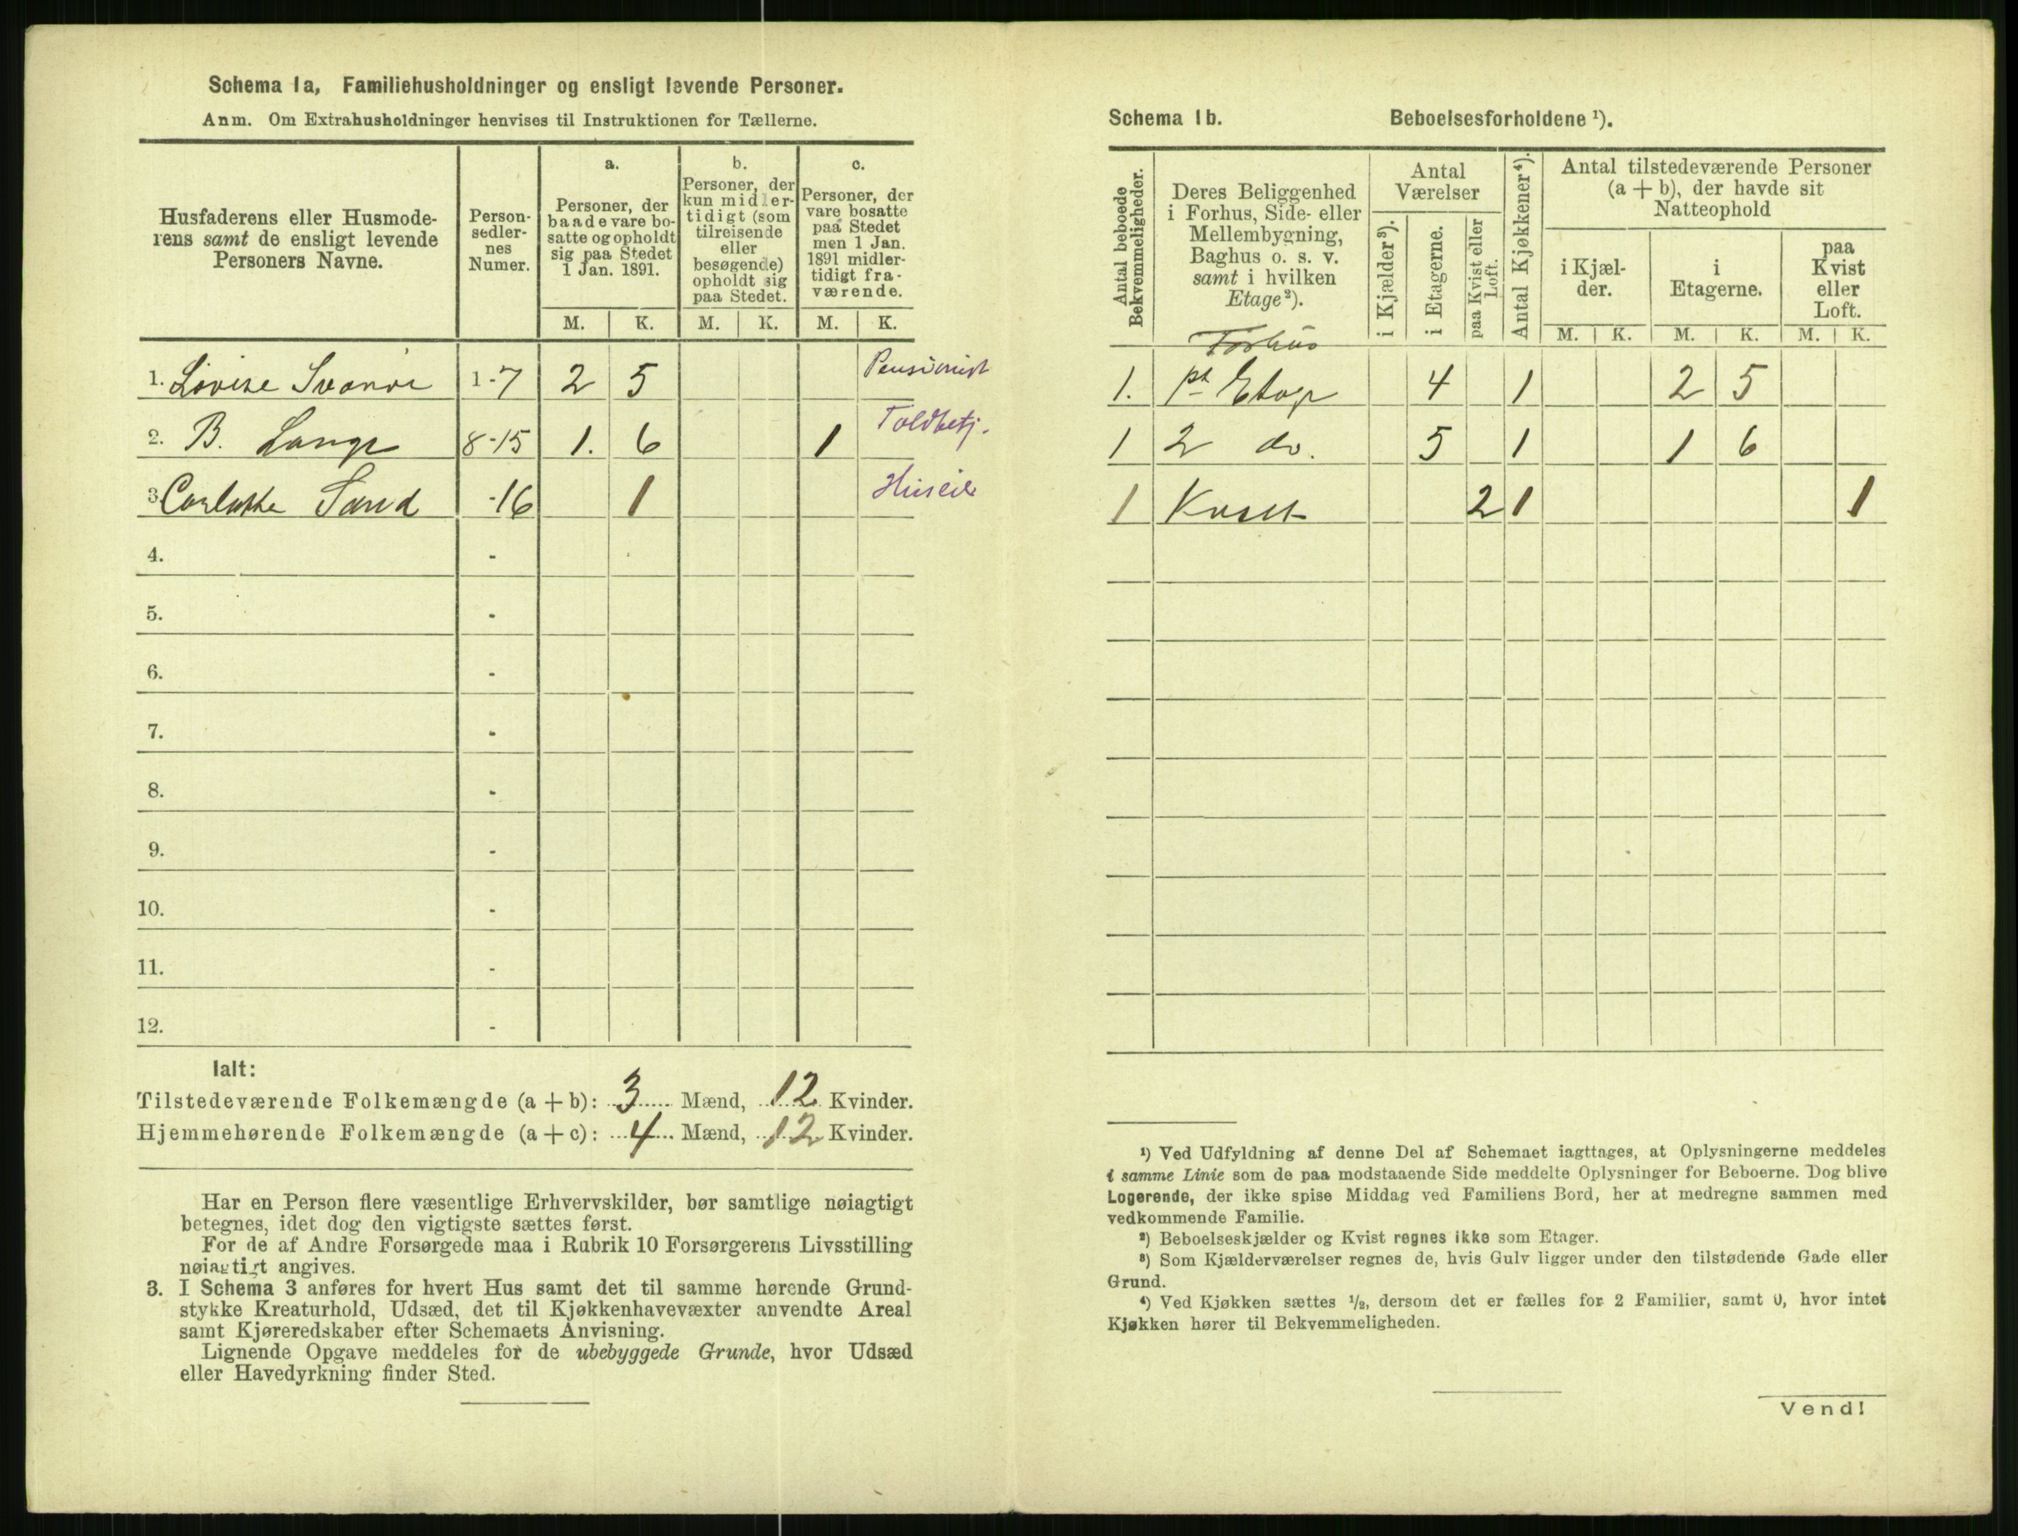 Schema 1a, Familiehusholdninger og ensligt levende Personer.
Anm. Om Extrahusholdninger henvises til Instruktionen for Tællerne.
Husfaderens eller Husmoderens samt de ensligt levende Personers Navne.
Personsedlernes Numer.
a.
Personer, der baade vare bosatte og opholdt sig paa Stedet 1 Jan. 1891.
b.
Personer, der kun midlertidigt (som tilreisende eller besøgende) opholdt sig paa Stedet.
c.
Personer, der vare bosatte paa Stedet men 1 Jan. 1891 midlertidigt fraværende.
M. K. M. K. M. K.
1. Lovise Svanöe 1-7 2 5 Pensionist
2. B. Lange 8-15 1. 6 1 Toldbetj.
3 Carlotte Sand -16 1 Huseie
4. -
5. -
6. -
7. -
8. -
9. -
10. -
11. -
12. -
Ialt:
Tilstedeværende Folkemængde (a + b): 3 Mænd, 12 Kvinder.
Hjemmehørende Folkemængde (a + c): 4 Mænd, 12 Kvinder.
Har en Person flere væsentlige Erhvervskilder, bør samtlige nøiagtigt
betegnes, idet dog den vigtigste sættes først.
For de af Andre Forsørgede maa i Rubrik 10 Forsørgerens Livsstilling
nøiagtigt angives.
3. I Schema 3 anføres for hvert Hus samt det til samme hørende Grund-
stykke Kreaturhold, Udsæd, det til Kjøkkenhavevæxter anvendte Areal
samt Kjøreredskaber efter Schemaets Anvisning.
Lignende Opgave meddeles for de ubebyggede Grunde, hvor Udsæd
eller Havedyrkning finder Sted.
Schema 1b. Beboelsesforholdene ¹).
Antal beboede Bekvemmeligheder.
Deres Beliggenhed i Forhus, Side- eller Mellembygning, Baghus o. s. v. samt i hvilken Etage²).
Antal Værelser
i Kjælder³).
i Etagerne.
paa Kvist eller Loft.
Antal Kjøkkener⁴).
Antal tilstedeværende Personer (a + b), der havde sit Natteophold
i Kjælder.
i Etagerne.
paa Kvist eller Loft.
M. K. M. K. M. K.
Forhus
1. 1ste Etage 4 1 2 5
1 2 do. 5 1 1 6
1 Kvist 2 1 1
¹) Ved Udfyldning af denne Del af Schemaet iagttages, at Oplysningerne meddeles
i samme Linie som de paa modstaaende Side meddelte Oplysninger for Beboerne. Dog blive
Logerende, der ikke spise Middag ved Familiens Bord, her at medregne sammen med
vedkommende Familie.
²) Beboelseskjælder og Kvist regnes ikke som Etager.
³) Som Kjælderværelser regnes de, hvis Gulv ligger under den tilstødende Gade eller
Grund.
⁴) Ved Kjøkken sættes ½, dersom det er fælles for 2 Familier, samt 0, hvor intet
Kjøkken hører til Bekvemmeligheden.
Vend!